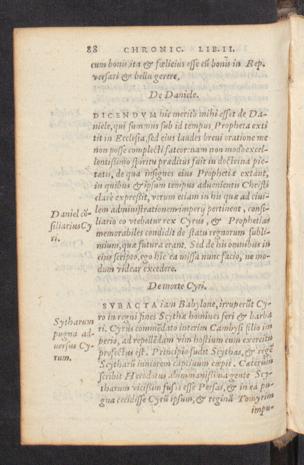 88 CHRONIC. LIB. II.
cum bonū ita & fœlicius esse cū bonū in Rep.
versari & bella gerere.
De Daniele.
DICENDVM hic meritò mihi esset de Da-
niele, qui summus sub id tempus Propheta exti
tit in Ecclesia, sed eius laudes brevi oratione me
non posse complecti fateor: nam non modò excel-
lentissimo spiritu præditus fuit in doctrina pie-
tatis, de qua insignes eius Prophetiæ extant,
in quibus & ipsum tempus adventus Christi
clarè expressit, verum etiam in his quæ ad civi-
lem administrationem imperij pertinent, consi-
liario eo utebatur rex Cyrus, & Prophetias
memorabiles condidit de statu regnorum subli-
mium, quæ futura erant. Sed de his omnibus in
eius scripto, ego hîc ea missa nunc facio, ne mo-
dum videar excedere.
Daniel cō-
siliarius Cy
ri.
De morte Cyri.
SVBACTA iam Babylone, irruperūt Cy-
ro in regni fines Scythæ homines feri & barba
ri. Cyrus commēdato interim Cambysi filio im
perio, ad repellēdam vim hostium cum exercitu
profectus est. Principiò fudit Scythas, & regē
Scytharū iuniorem captiuum cepit. Cæterùm
scribit Herodotus
tharum vicissim fusos esse Persas, & in ea pu-
gna cecidisse Cyrū ipsum, & reginā Tomyrim
impu-
Sytharum
pugna ad-
uersus Cy-
rum.